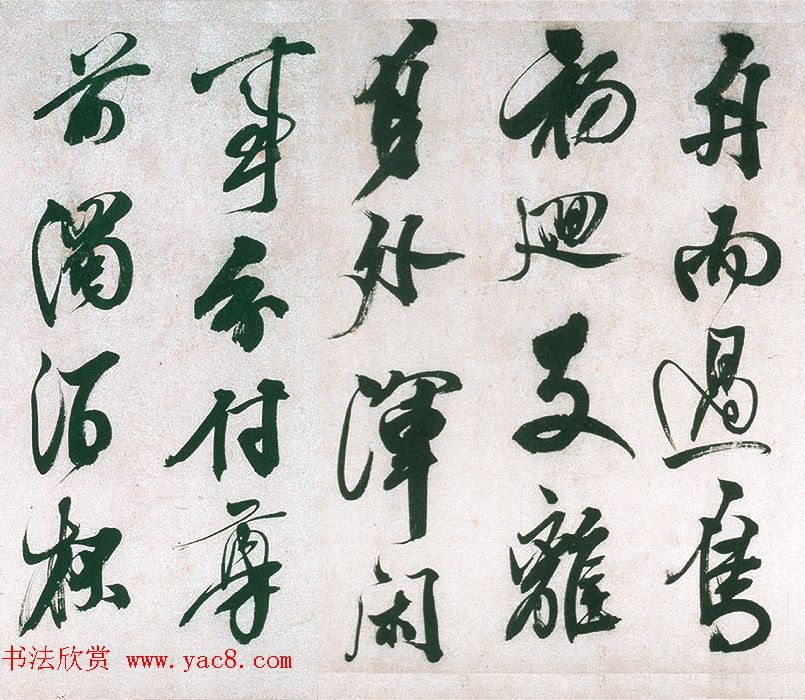 舟雨過鴈
初迴支離
身外渾閑
事分付尊
前濁酒杯
书法欣赏 www.yac8.com